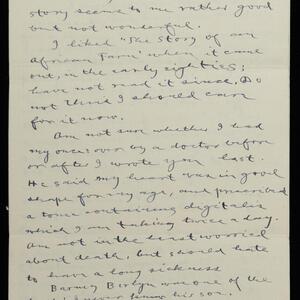 story seems to me rather good
but not wonderful.
I liked "The Story of an
African Farm" when it came
out, in the early eighties;
have not read it since. Do
not think I should care
for it now.
Am not sure whether I had
my once over by a doctor before
or after I wrote you last.
He said my heart was in good
shape for my age, and prescribed
a tonic containing digitalis
which I am taking twice a day.
Am not in the least worried
about death, but should hate
to have a long sickness
Barney was one of the
his son,